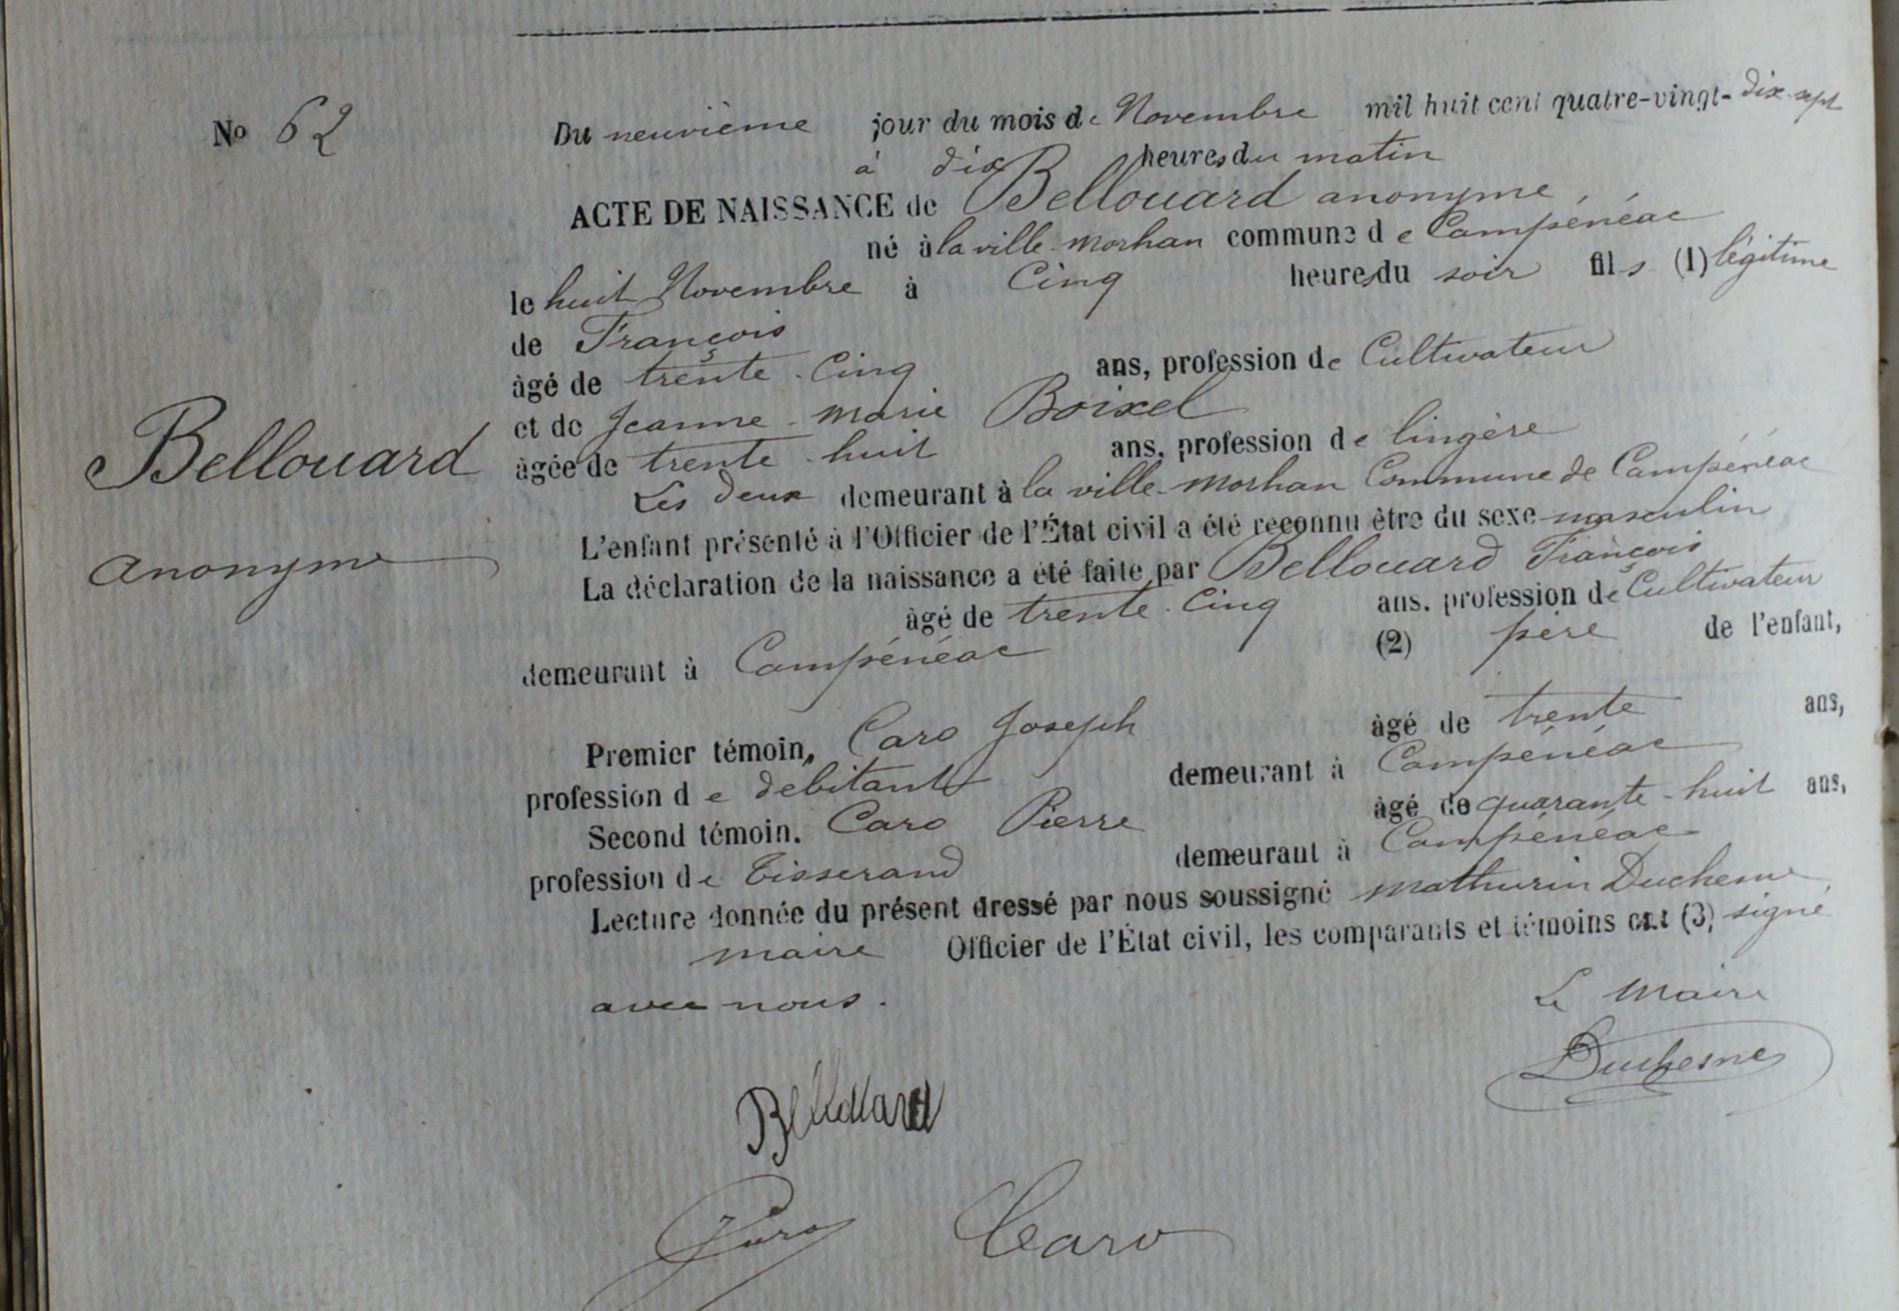 No 62
Du neuvième jour du mois de Novembre mil huit cent quatre-vingt-dix-sept
à dix heures du matin
ACTE DE NAISSANCE de Bellouard anonyme,
né à la ville-morhan commune de Campénéac
le huit Novembre à Cinq heures du soir fils (1) légitime
de François
âgé de trente-Cinq ans, profession de Cultivateur
et de Jeanne-Marie Boixel
âgée de trente-huit ans, profession de lingère
Les deux demeurant à la ville-morhan Commune de Campénéac
Bellouard
anonyme
L'enfant présenté à l'Officier de l'État civil a été reconnu être du sexe masculin
La déclaration de la naissance a été faite par Bellouard François
âgé de trente-Cinq ans, profession de Cultivateur
demeurant à Campénéac (2) père de l'enfant,
Premier témoin, Caro Joseph âgé de trente ans,
profession de débitant demeurant à Campénéac
Second témoin. Caro Pierre âgé de quarante-huit ans,
profession de tisserand demeurant à Campénéac
Lecture donnée du présent dressé par nous soussigné Mathurin Duchesne
maire Officier de l'État civil, les comparants et témoins ont (3) signé
avec nous.
Le Maire
Duchesne
Bellouard
Caro Caro